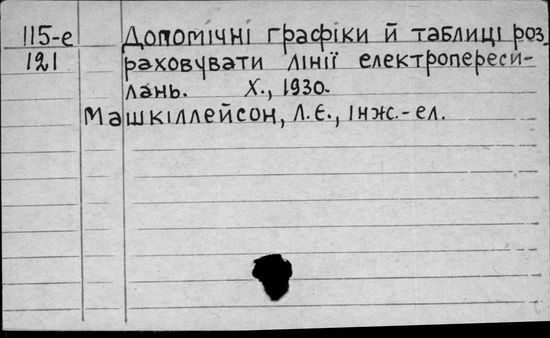 115-е Допомічні графіки й таблиці роз
121 раховувати лінії електропереси-
лань. Х., 1930.
Машкіллейсон, Л.Є., інж.-ел.